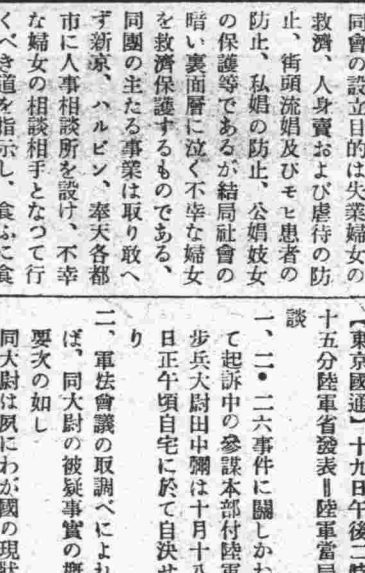 同會の設立目的は失業婦女の
救濟、人身賣および虐待の防
止、街頭流娼及びモヒ患者の
防止、私娼の防止、公娼妓女
の保護等であるが結局社會の
暗い裏面層に泣く不幸な婦女
を救濟保護するものである、
同團の主たる事業は取り敢へ
ず新京、ハルビン、奉天各都
市に人事相談所を設け、不幸
な婦女の相談相手となつて行
くべき道を指示し、食ふに食
【東京國通】十九日午後二時
十五分陸軍省發表‖陸軍當局
談
一、二・二六事件に關しかね
て起訴中の參謀本部付陸軍
步兵大尉田中彌は十月十八
日正午頃自宅に於て自決せ
り
二、軍法會議の取調べによれ
ば、同大尉の被疑事實の概
要次の如し
同大尉は夙にわが國の現狀